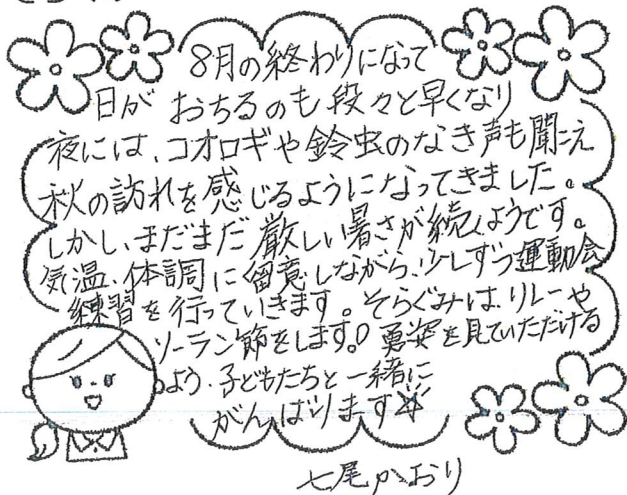 8月の終わりになって
日が おちるのも段々と早くなり
夜には、コオロギや鈴虫のなき声も聞こえ
秋の訪れを感じるようになってきました。
しかし、まだまだ厳しい暑さが続くようです。
気温、体調に留意しながら、少しずつ運動会
練習を行っていきます。そらぐみは、リレーや
ソーラン節をします。勇姿を見ていただける
よう、子どもたちと一緒に
がんばります☆
七尾かおり